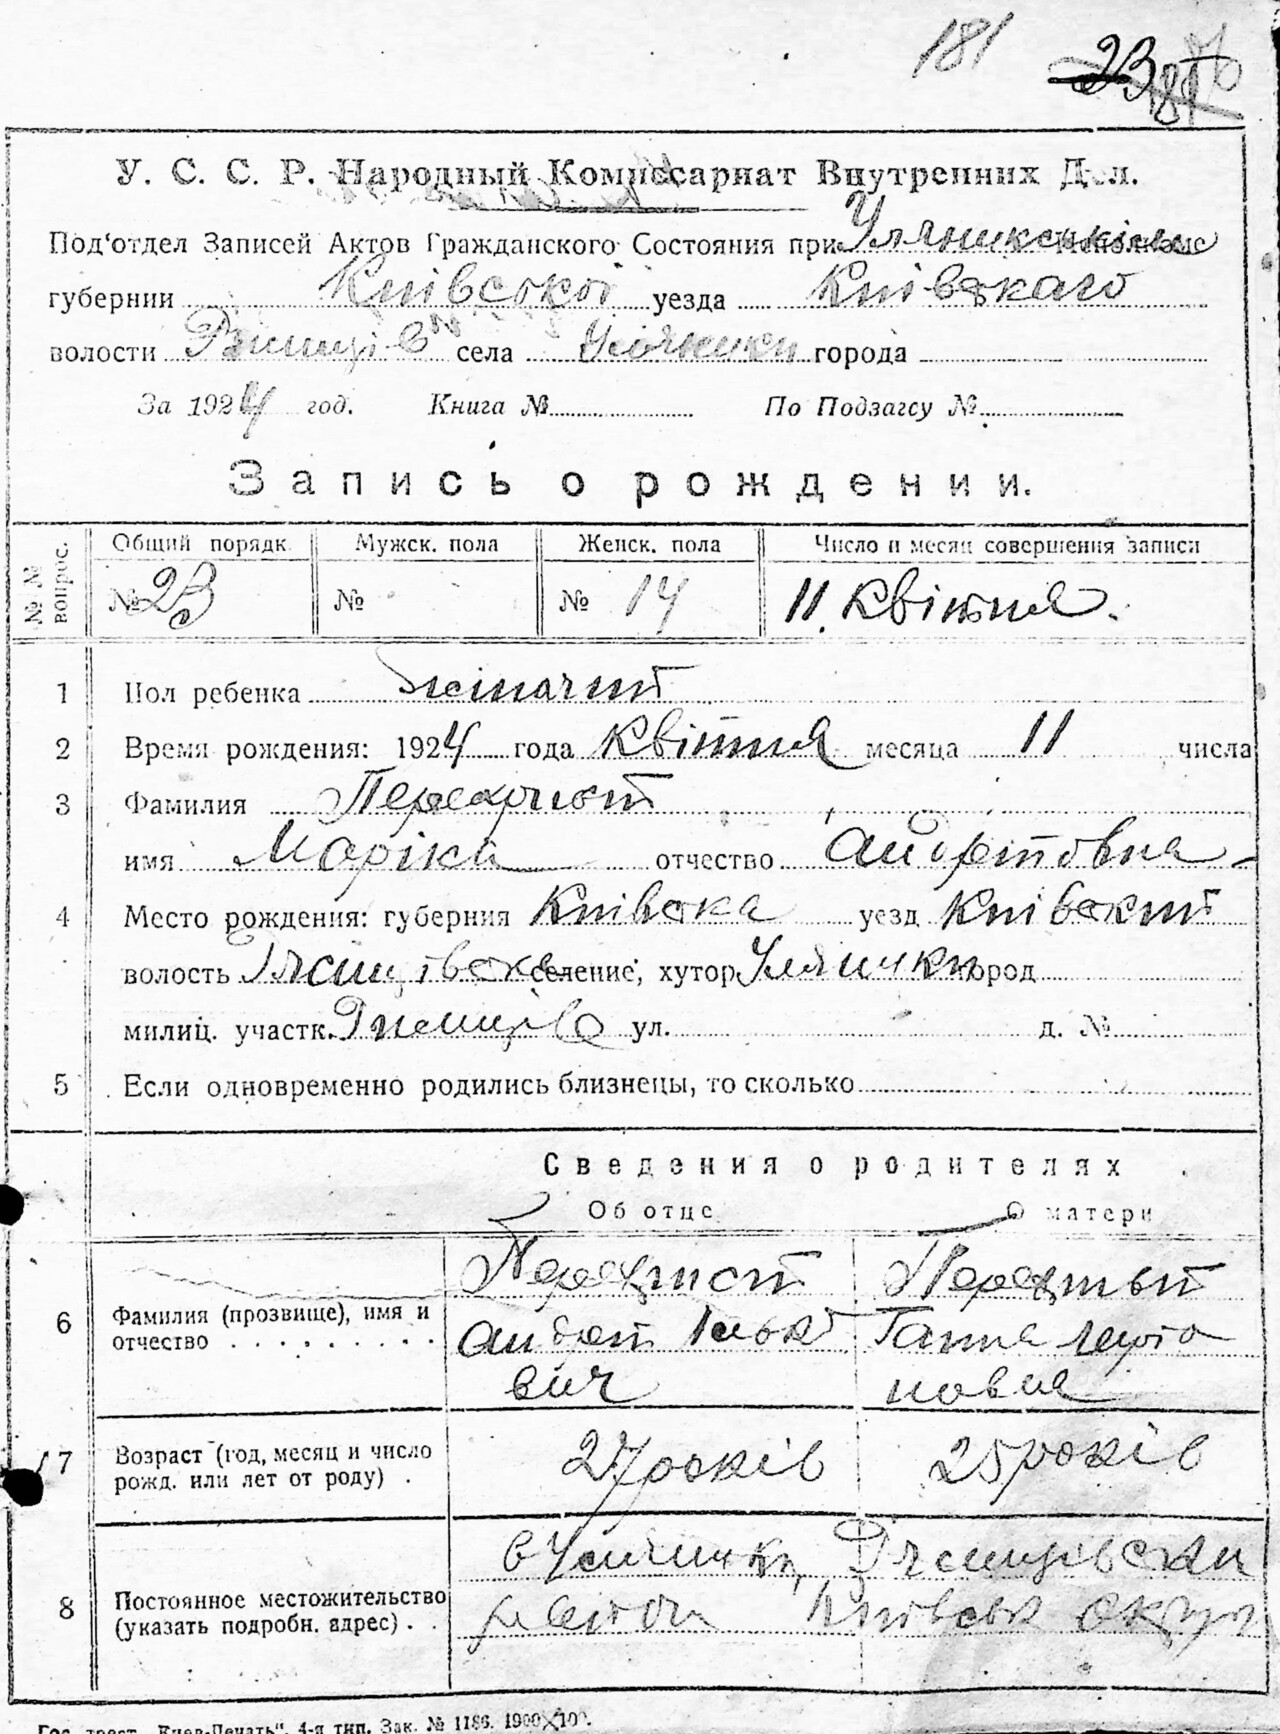 181
23
У. С. С. Р. Народный Комиссариат Внутренних Дел.
Под‘отдел Записей Актов Гражданского Состояния при
губернии Київської уезда Київскаго
волости села города
За 1924 год. Книга № По Подзагсу №
Запись о рождении.
№№ вопрос. Общий порядк. Мужск. пола Женск. пола Число и месяц совершения записи
№ 23 № № 14 11 Квітня.
1 Пол ребенка жіночий
2 Время рождения: 1924 года Квітня месяца 11 числа
3 Фамилия Перехрист
имя Маріка отчество Андріївна
4 Место рождения: губерния Київска уезд Київский
волость селение, хутор Уляники город
милиц. участк. ул. д. №
5 Если одновременно родились близнецы, то сколько
Сведения о родителях
Об отце О матери
6 Фамилия (прозвище), имя и Перехрист Перехрист
отчество . . . . . . . . . Андрей Ганна
вич новна
7 Возраст (год, месяц и число 27 років 25 років
рожд. или лет от роду) .
8 Постоянное местожительство
(указать подробн. адрес) . . району Київськ округи
Гос. трест „Киев-Печать“. 4-я тип. Зак. № 1186. 1900×100.